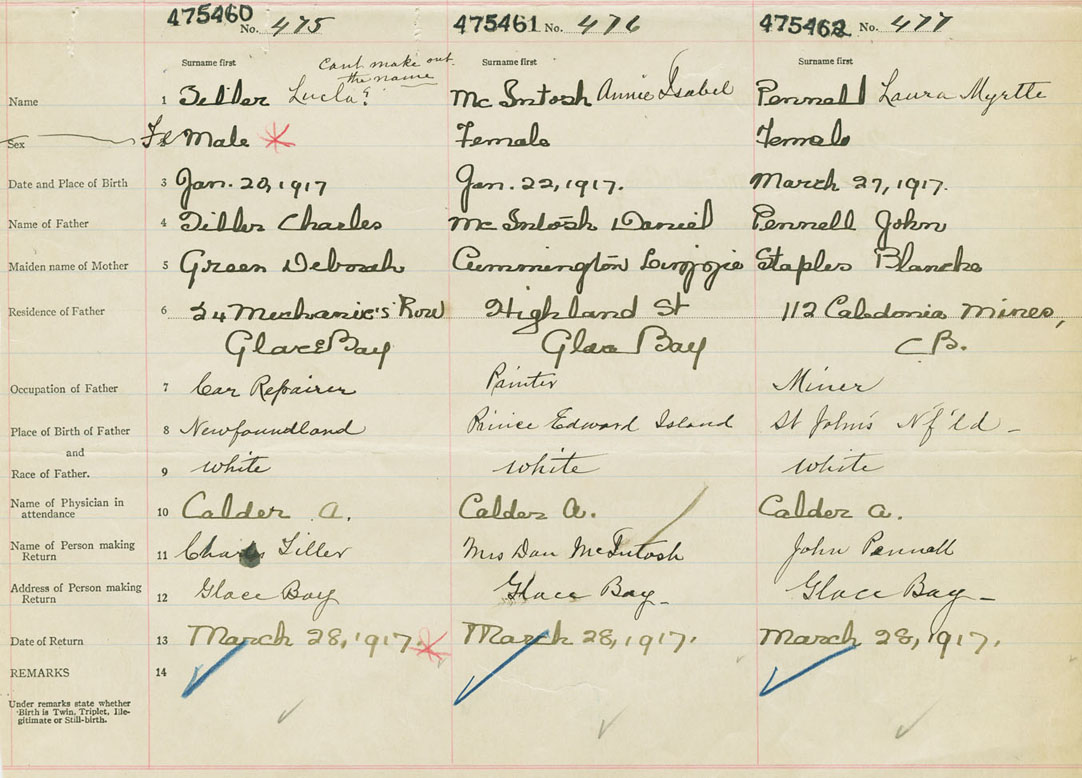 475460 No. 475 475461 No. 476 475462 No. 477
Surname first Surname first Surname first
Cant make out
the name
Name 1 Tiller Lucla? Mc Intosh Annie Isabel Pennell Laura Myrtle
Sex Fe Male Female Female
Date and Place of Birth 3 Jan. 20, 1917 Jan. 22, 1917. March 27, 1917.
Name of Father 4 Tiller Charles Mc Intosh Daniel Pennell John
Maiden name of Mother 5 Green Deborah Cummington Staples Blanche
Residence of Father 6 24 Mechanic's Row Highland St 112 Caledonia Mines,
Glace Bay Glace Bay C B.
Occupation of Father 7 Car Repairer Painter Miner
Place of Birth of Father 8 Newfoundland Prince Edward Island St John's N'f'ld -
and
Race of Father. 9 White White White
Name of Physician in
attendance 10 Calder A. Calder A. Calder A.
Name of Person making
Return 11 Charls Tiller Mrs Dan McIntosh John Pennell
Address of Person making
Return 12 Glace Bay Glace Bay - Glace Bay -
Date of Return 13 March 28, 1917. March 28, 1917. March 28, 1917.
REMARKS 14
Under remarks state whether
Birth is Twin, Triplet, Ille-
gitimate or Still-birth.